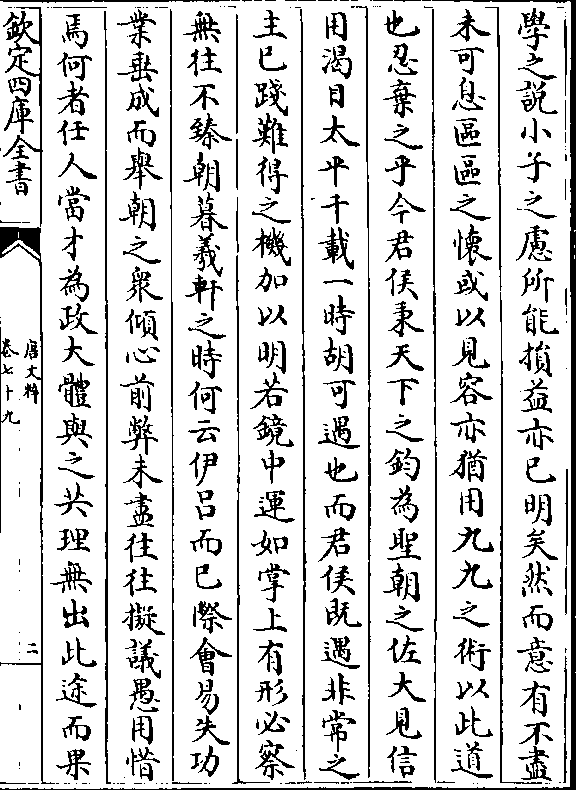 學之説小子之慮所能損益亦已明矣然而意有不盡
未可息區區之懷或以見容亦猶用九九之術以此道
也忍棄之乎今君侯秉天下之鈞為聖朝之佐大見信
用渴日太平千載一時胡可遇也而君侯既遇非常之
主已踐難得之機加以明若鏡中運如掌上有形必察
無往不臻朝暮羲軒之時何云伊吕而已際㑹易失功
業垂成而舉朝之衆傾心前弊未盡往往擬議愚用惜
焉何者任人當才為政大體與之共理無出此途而果
欽定四庫全書
唐文粹
卷七十九
二